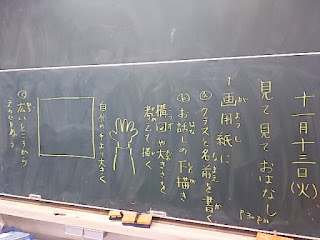 十一月十三日(火)
見て見ておはなし
画用紙に
クラスと名前を書く
お話しの下描き
構図や大きさを
考えて描く
自分の手より大きく
広いところから